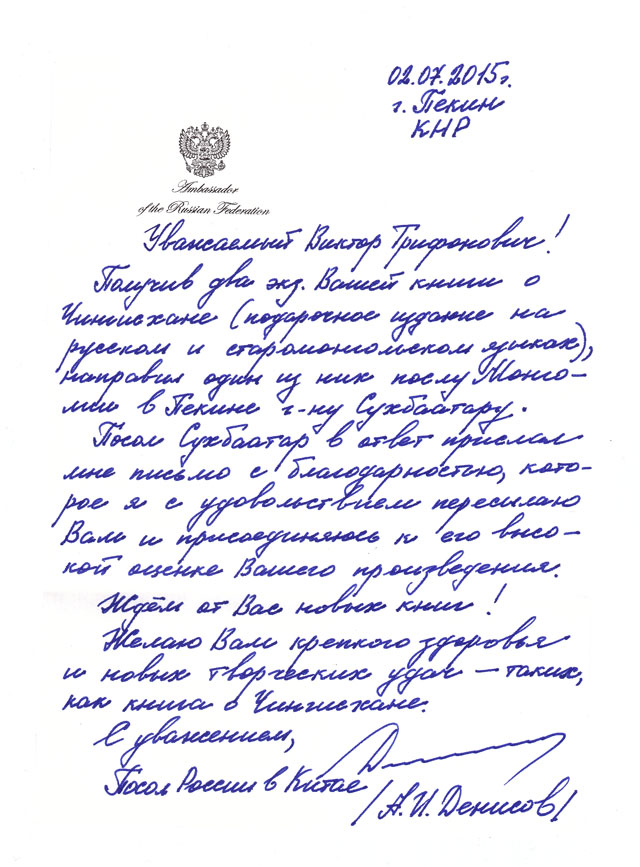 02.07.2015г.
г. Пекин
КНР
Ambassador
of the Russian Federation
Уважаемый Виктор Трифонович!
Получив два экз. Вашей книги о
Чингисхане (подарочное издание на
русском и старомонгольском языках),
направил один из них послу Монго-
лии в Пекине г-ну Сухбаатару.
Посол Сухбаатар в ответ прислал
мне письмо с благодарностью, кото-
рое я с удовольствием пересылаю
Вам и присоединяюсь к его высо-
кой оценке Вашего произведения.
Ждём от Вас новых книг!
Желаю Вам крепкого здоровья
и новых творческих удач – таких,
как книга о Чингисхане.
С уважением,
Посол России в Китае
/А.И. Денисов/